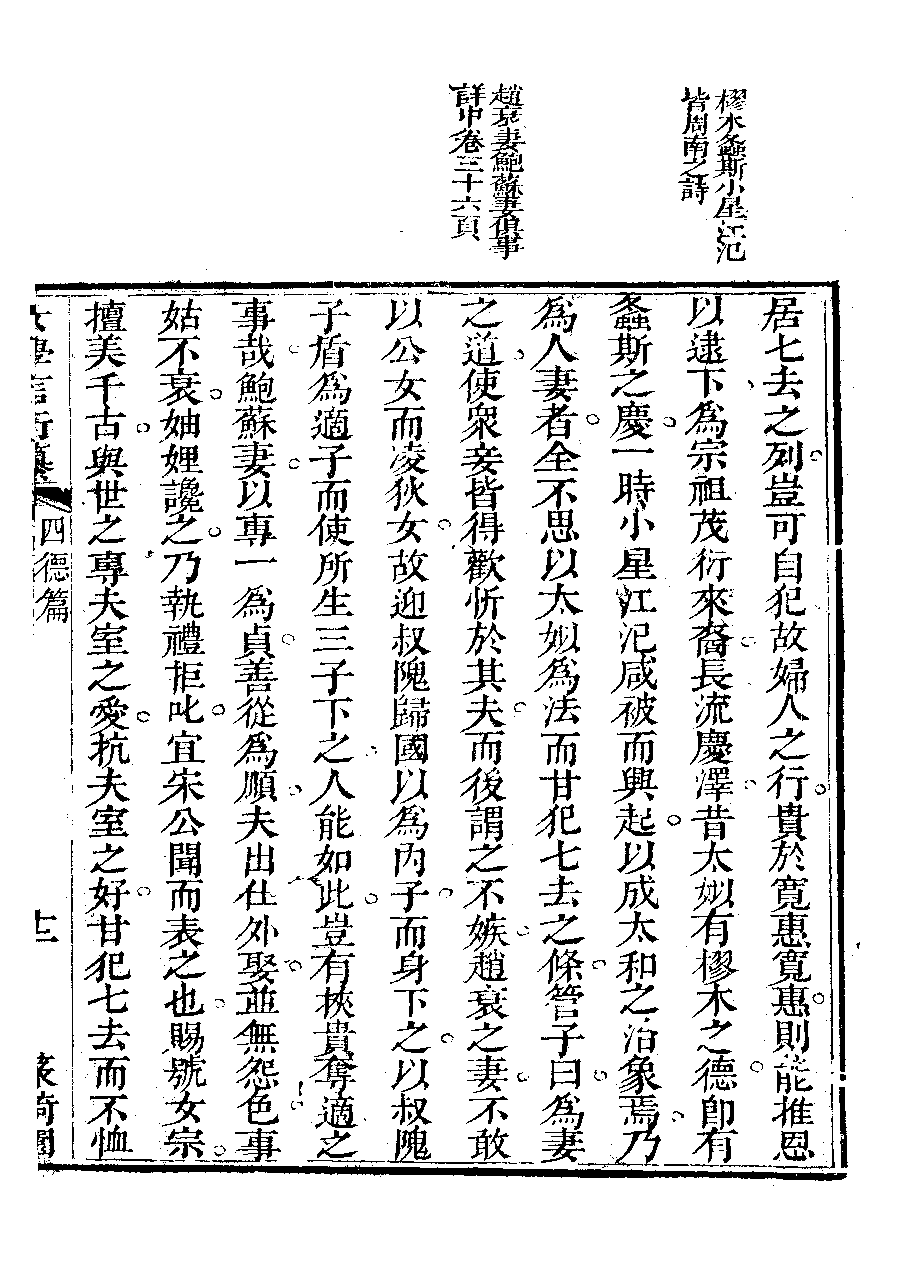 樛木螽斯小星江汜
皆周南之詩
趙衰妻鮑蘇妻俱事
詳中卷三十六頁
居七去之列豈可自犯故婦人之行貴於寬惠寬惠則能推恩
以逮下為宗祖茂衍來裔長流慶澤昔太姒有樛木之德卽有
螽斯之慶一時小星江汜咸被而興起以成太和之治象焉乃
為人妻者全不思以太姒為法而甘犯七去之條管子曰為妻
之道使眾妾皆得歡忻於其夫而後謂之不嫉趙衰之妻不敢
以公女而凌狄女故迎叔隗歸國以為內子而身下之以叔隗
子盾為適子而使所生三子下之人能如此豈有挾貴奪適之
事哉鮑蘇妻以專一為貞善從為順夫出仕外娶並無怨色事
姑不衰妯娌讒之乃執禮拒叱宜宋公聞而表之也賜號女宗
擅美千古與世之專夫室之愛抗夫室之好甘犯七去而不恤
女學言行纂
四德篇
十二